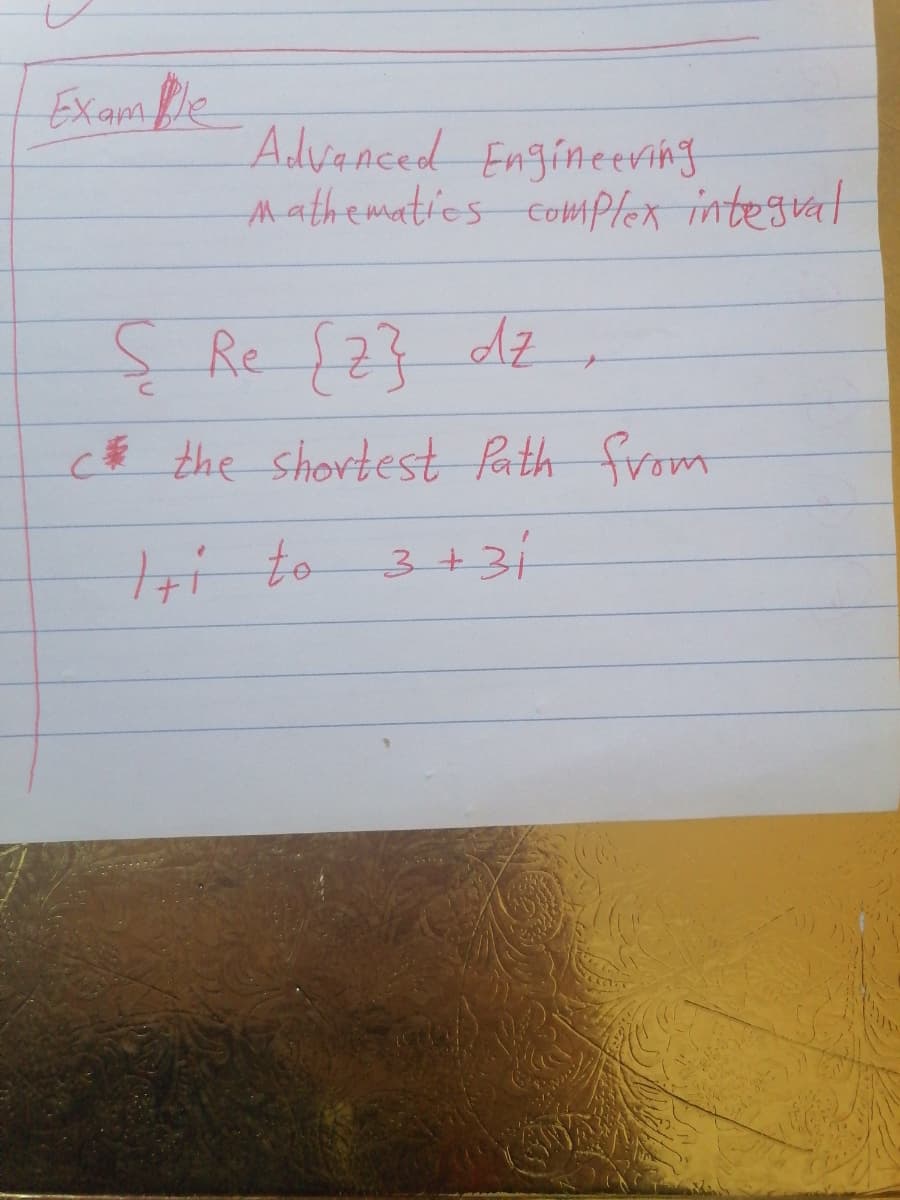 Example
Advanced Engineering
Mathematics complex integral
∫ Re {z} dz ,
c
c the shortest Path from
1+i to 3+3i